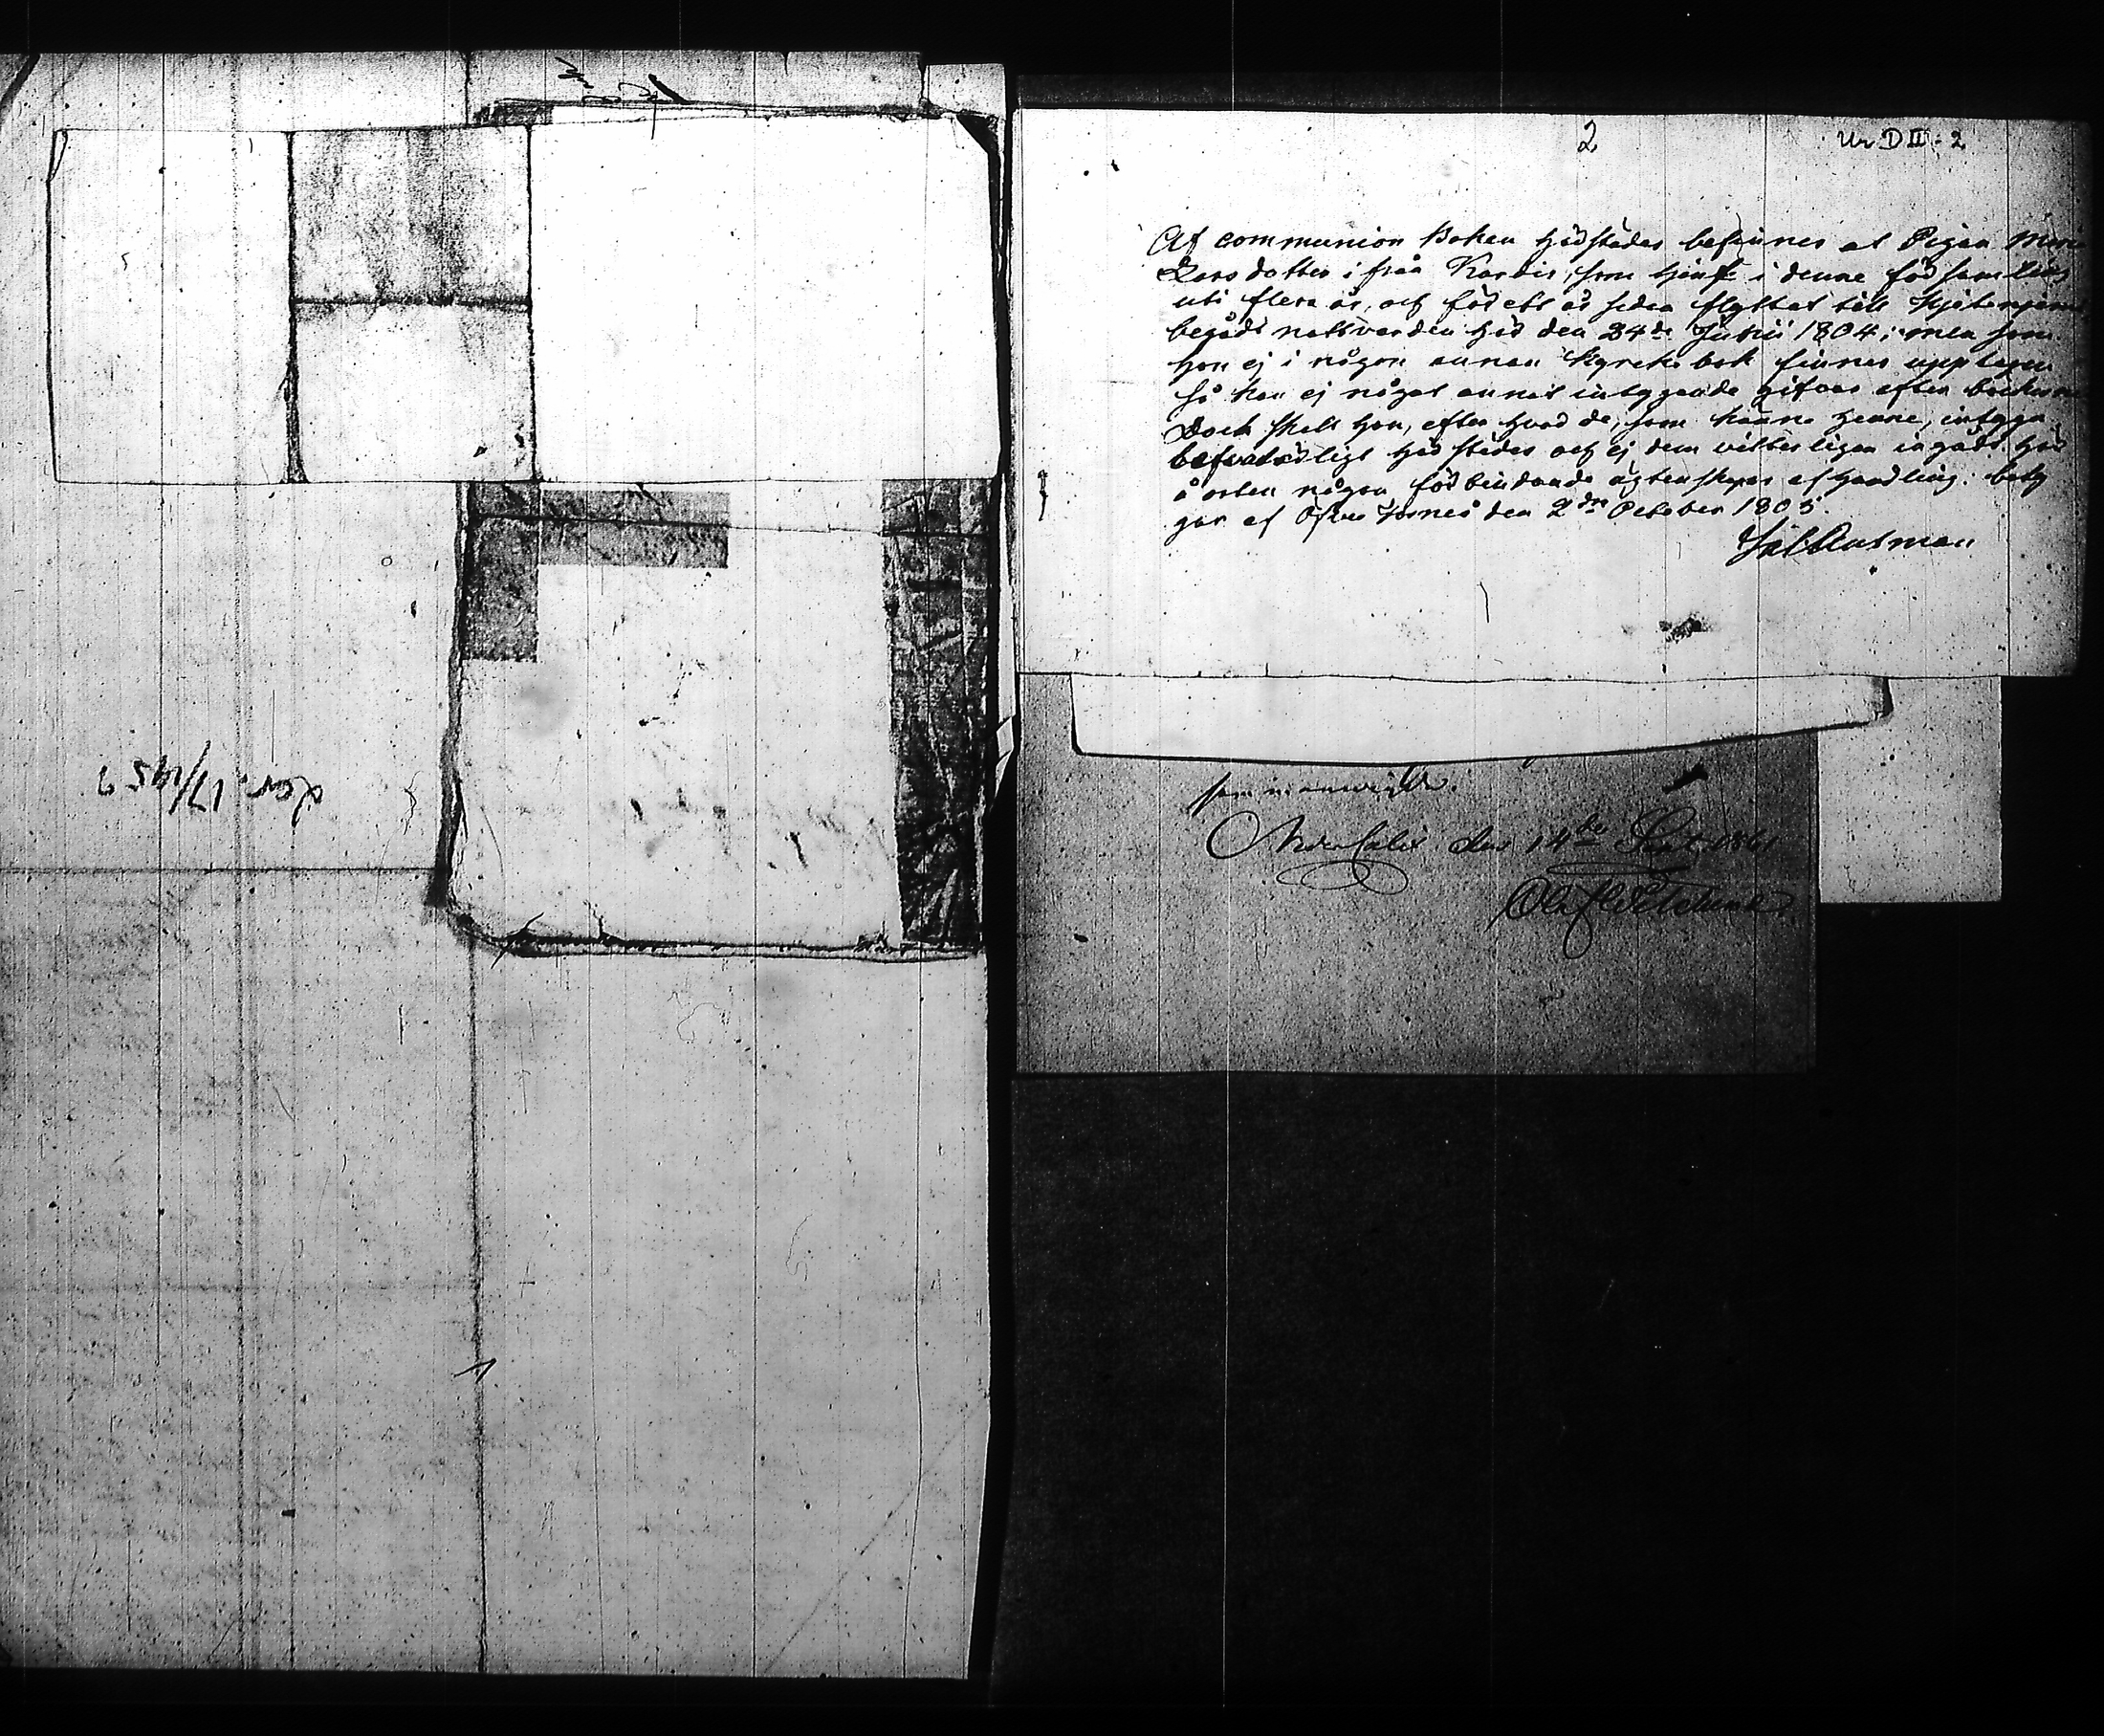 2
Ur D II: 2
Af communion Boken härstädes befinnes at Pigan Maria
Lars dotter ifrån Kardis, som tjent i denne församling
uti flera år, och för ett år sedan flyttat till
begådt nattvarden här den 24de Junii 1804; men som
hon ej i någon annan Kyrcko bok finnes upptagen
så kan ej något annat intygande gifvas efter böckerna
Dock skall hon, efter hvad de, som känna henne, intyga
härstädes och ej dem vitterligen ingådt här
å orten någon förbindande ägtenskaps afhandling: bety
gar af Öfver Torneå den 2dre October 1805.
Joh Wikman
som
Neder Calix den 14de Sept. 1861
Olof
Lör. 17/1459